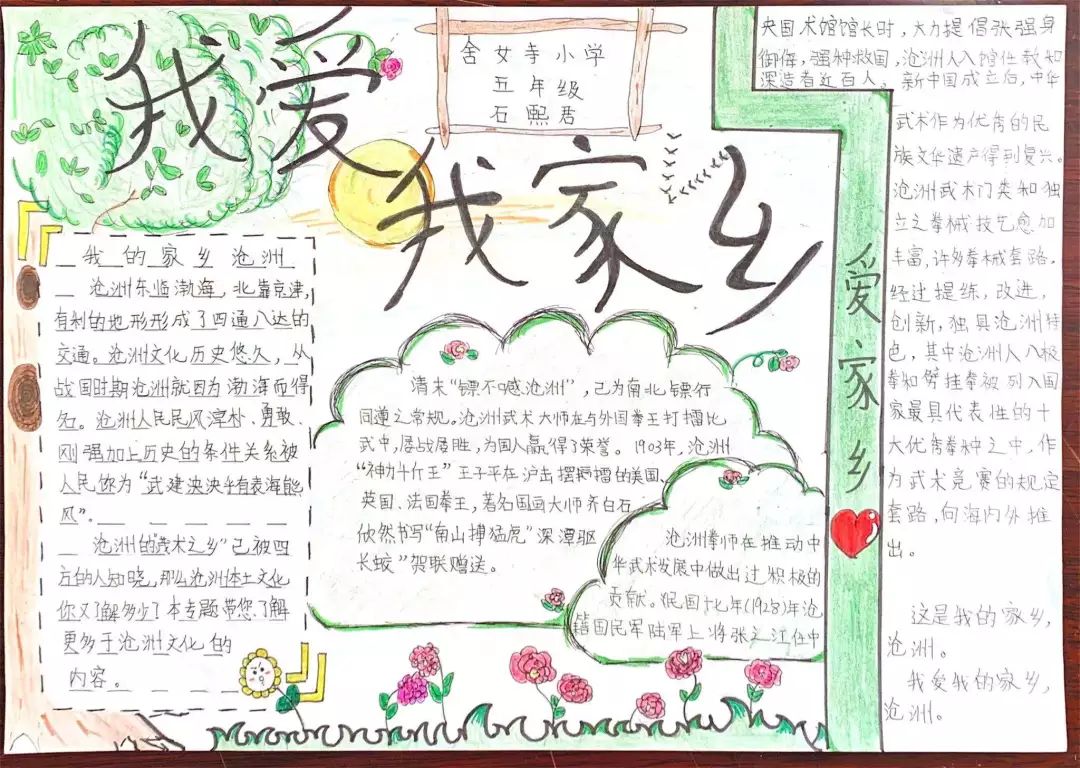 我爱
我家乡
舍女寺小学
五年级
石熙君
我的家乡沧洲
沧洲东临渤海,北靠京津,
有利的地形形成了四通八达的
交通。沧洲文化历史悠久,从
战国时期沧洲就因为渤海而得
名。沧洲人民民风淳朴、勇敢、
刚强加上历史的条件关系被
人民称为“武建泱泱乎有表海能
风”。
沧洲的“武术之乡”已被四
方的人知晓,那么沧洲本土文化
你又了解多少?本专题带您了解
更多于沧洲文化的
内容。
清末“镖不喊沧洲”,已为南北镖行
同遵之常规。沧洲武术大师在与外国拳王打擂比
武中,屡战屡胜,为国人赢得了荣誉。1903年,沧洲
“神力千斤王”王子平在沪出摆擂的美国、
英国、法国拳王,著名国画大师齐白石
欣然书写“南山搏猛虎”深潭驱
长蛟”贺联赠送。
沧洲拳师在推动中
华武术发展中做出过积极的
贡献。民国十七年(1928)年沧
籍国民军陆军上将张之江任中
央国术馆馆长时,大力提倡张强身
御侮,强种救国,沧洲人入馆任教和
深造者近百人。新中国成立后,中华
武术作为优秀的民
族文华遗产得到复兴。
沧洲武术门类和独
立之拳械技艺愈加
丰富,许多拳械套路,
经过提练,改进,
创新,独具沧洲特
色,其中沧洲人八极
拳和劈挂拳被列入国
家最具代表性的十
大优秀拳种之中,作
为武术竞赛的规定
套路,向海内外推
出。
这是我的家乡,
沧洲。
我爱我的家乡,
沧洲。
爱家乡